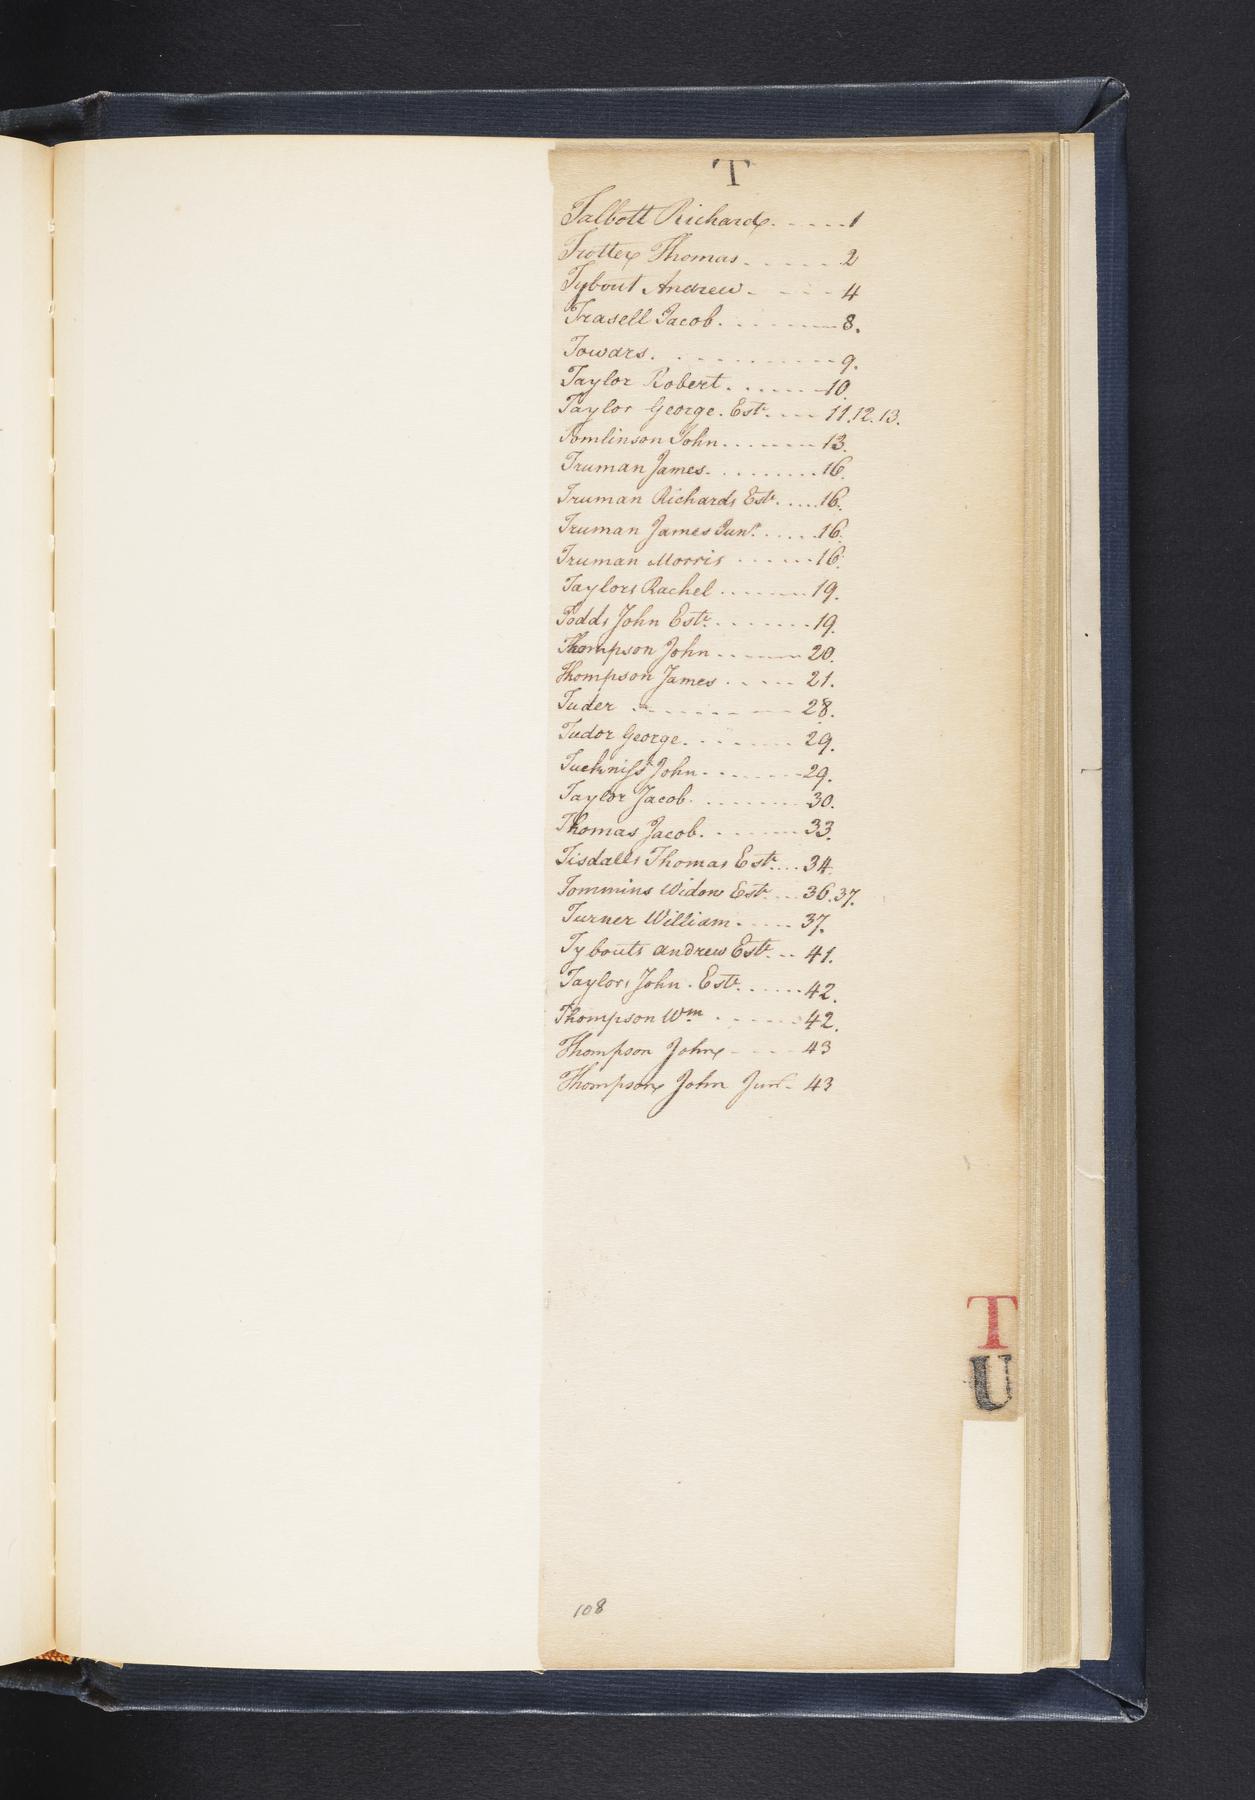 T
Talbott Richard. - - - - 1
Trotter Thomas. - - - - - 2
Tybout Andrew - - - - 4
Trasell Jacob. - - - - - - 8.
Towars. - - - - - - - - 9.
Taylor Robert. - - - - - 10.
Taylor George. Estr. - - - 11.12.13.
Tomlinson John. - - - - - 13.
Truman James. - - - - - - 16.
Truman Richards Estr. - - - 16.
Truman James Junr. - - - - 16.
Truman Morris - - - - - 16.
Taylors Rachel - - - - - 19.
Todds John Estr. - - - - - 19.
Thompson John - - - - - 20.
Thompson James - - - - 21.
Tuder - - - - - - - - 28.
Tudor George. - - - - - 29.
Tuckniss John - - - - - 29.
Taylor Jacob. - - - - - - 30.
Thomas Jacob. - - - - - 33.
Tisdalls Thomas Estr. - - 34.
Tommins Widow Estr. - - 36.37.
Turner William - - - - 37.
Tybouts Andrew Estr. - - 41.
Taylors John. Estr. - - - - 42.
Thompson Wm - - - - - 42.
Thompson John - - - - 43
Thompson John Junr - 43
T
U
108